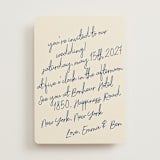 you're invited to our
wedding!
saturday, may 15th, 2027
at five o'clock in the afternoon.
See you at Bonheur Hotel
1850. Happiness Road.
New York, New York
Love, Emma & Ben